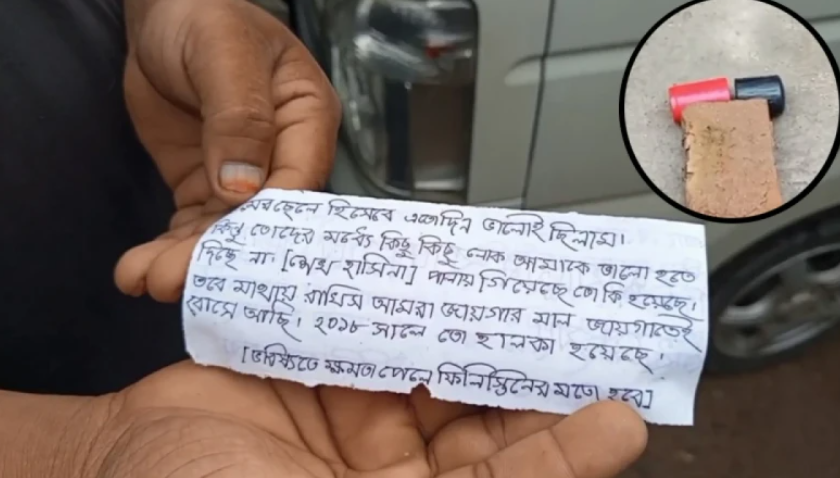 অবহেলে হিসেবে এতোদিন ভালোই ছিলাম।
কিন্তু তোদের মধ্যে কিছু কিছু লোক আমাকে ভালো হতে
দিছে না। [শেখ হাসিনা] পালায় গিয়েছে তো কি হয়েছে।
তবে মাথায় রাখিস আমরা জায়গার মাল জায়গাতেই
বোসে আছি। ২০১৮ সালে তো হালকা হয়েছে।
[ভবিষ্যিতে ক্ষমতা পেলে ফিলিস্তিনের মতো হবে]